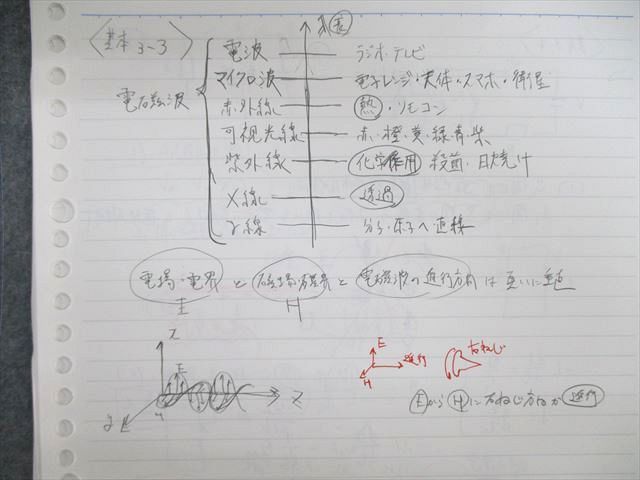 〈基本 3-3〉
入長
電磁波
電波 ラジオ・テレビ
マイクロ波 電子レンジ・天体・スマホ・衛星
赤外線 熱・リモコン
可視光線 赤・橙・黄・緑・青・紫
紫外線 化学作用 殺菌・日焼け
X線 透過
γ線 分子・原子へ直接
電場・電界 と 磁場・磁界 と 電磁波の進行方向 は 互いに垂直
E H
x
E
y
H
z
E
進行
H
右ねじ
EからHに右ねじ方向が進行